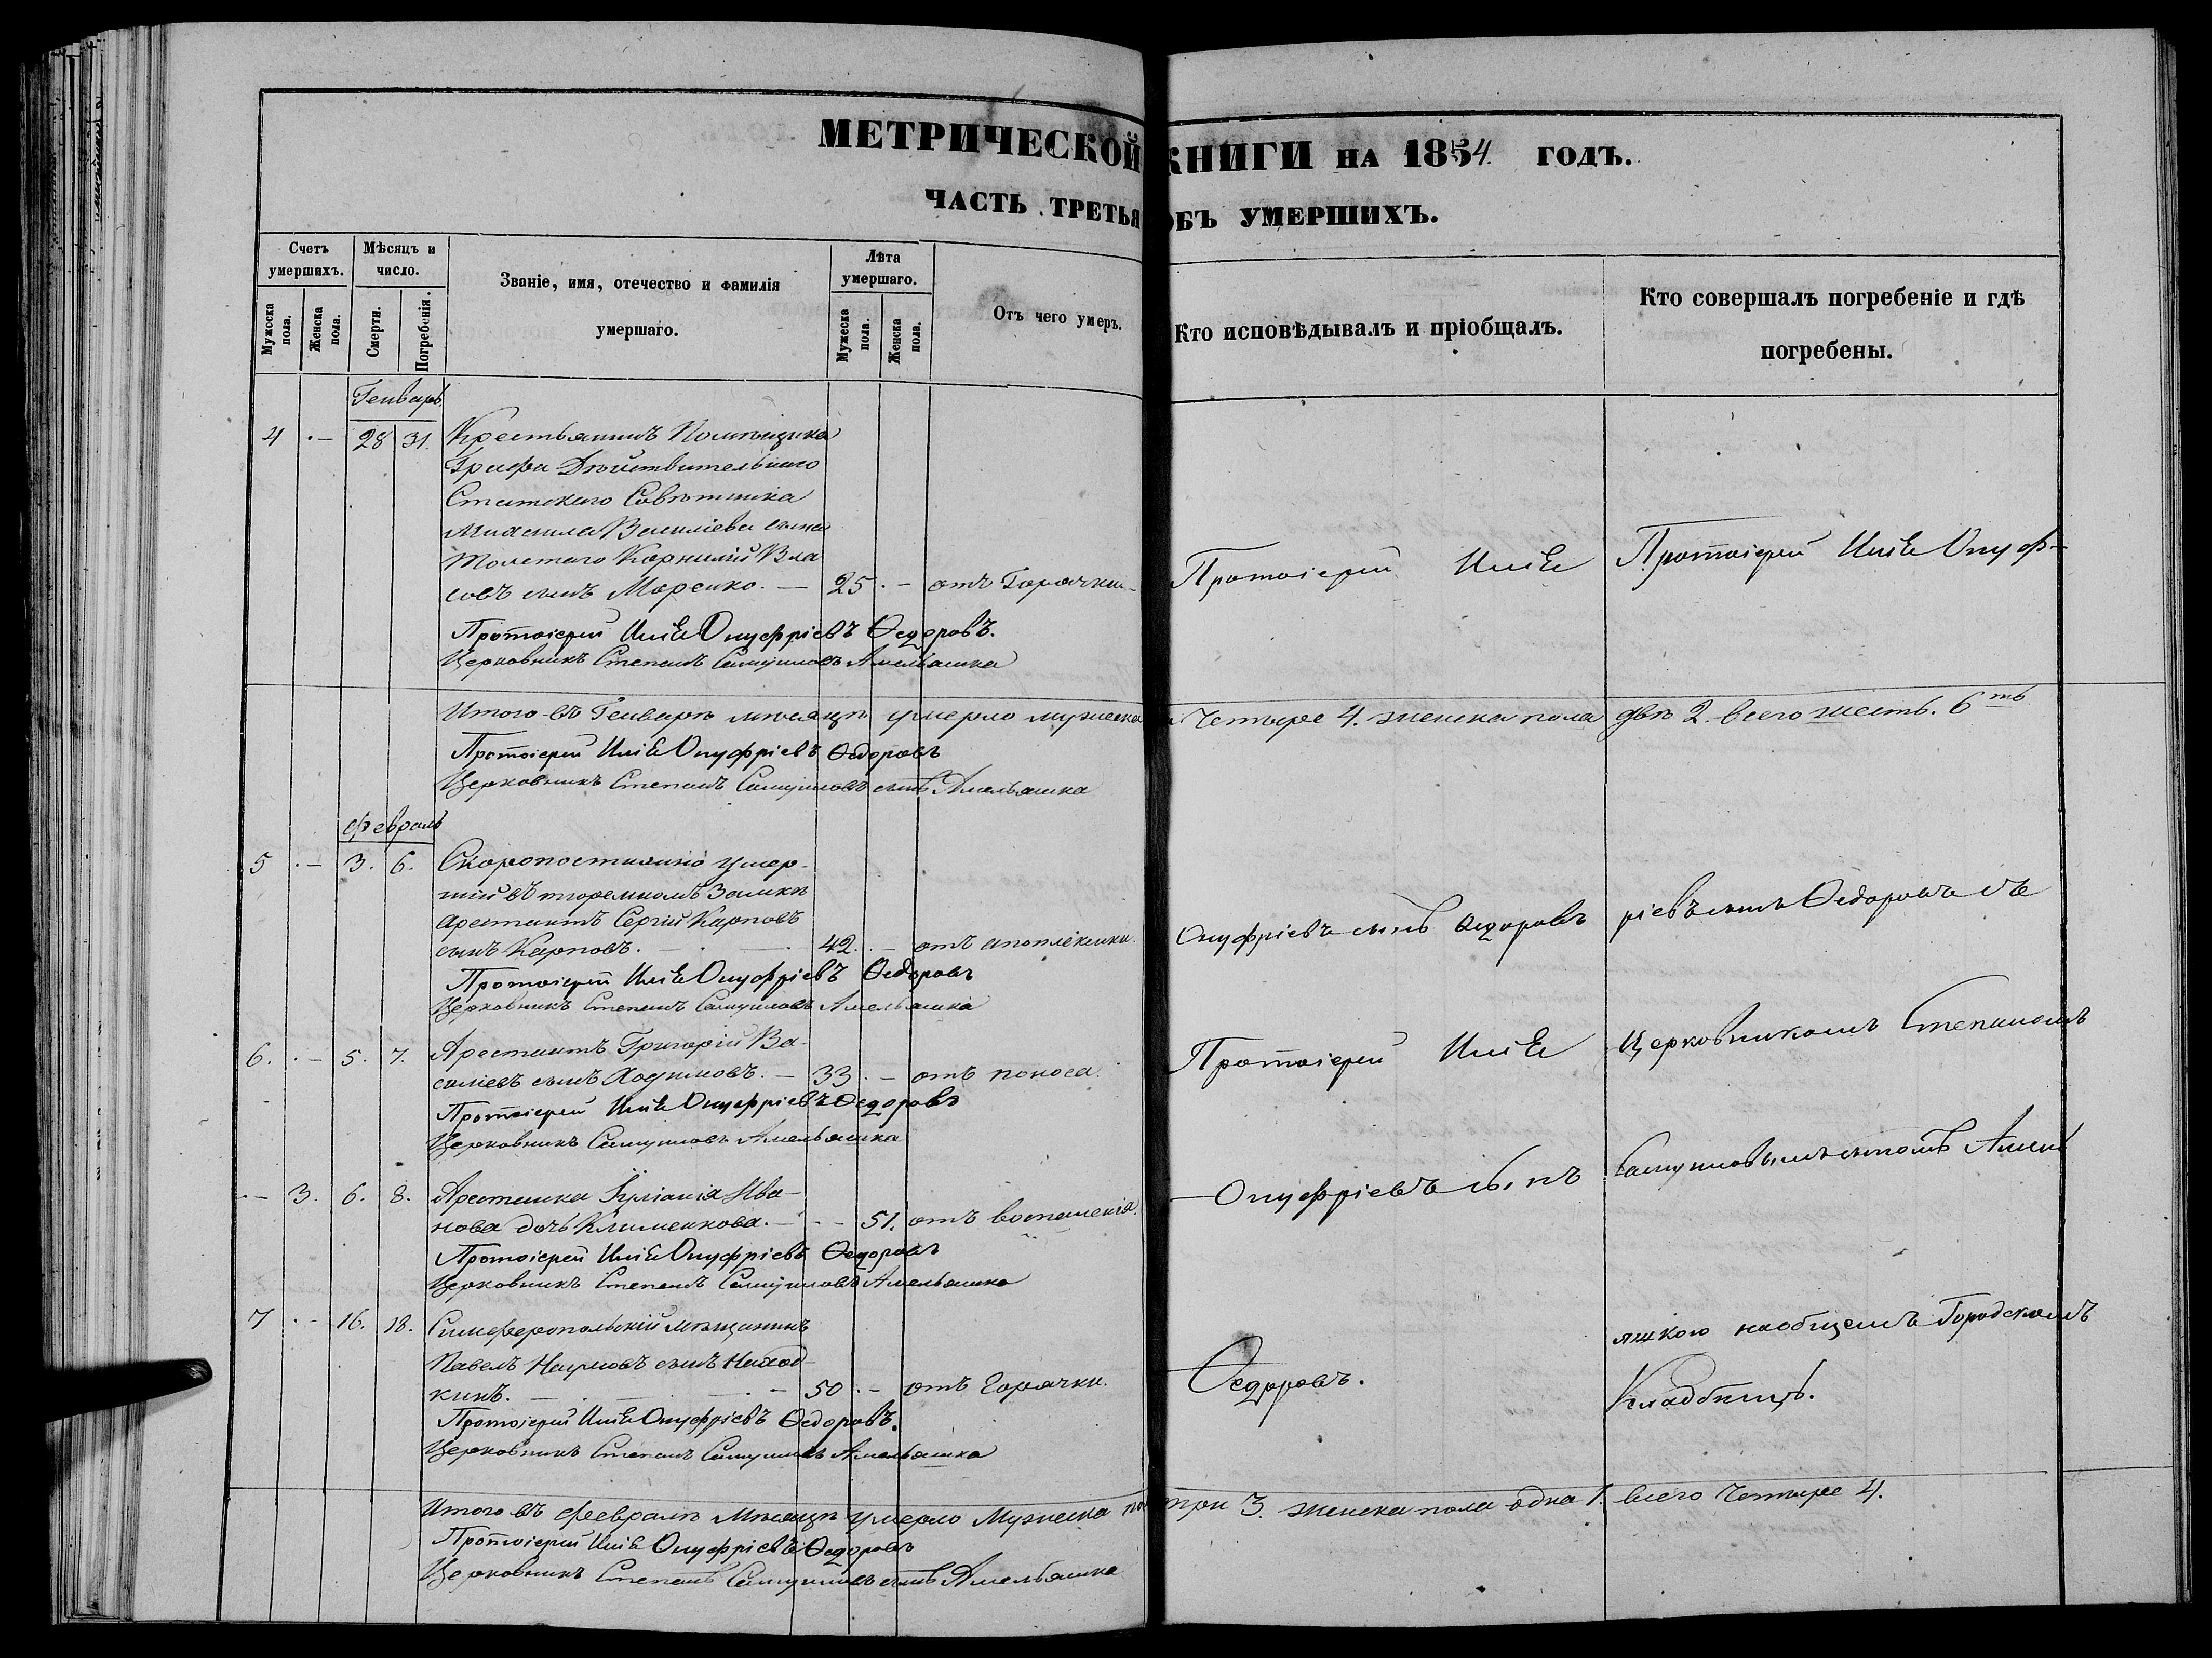 МЕТРИЧЕСКОЙ КНИГИ НА 1854. ГОДЪ.
ЧАСТЬ ТРЕТЬЯ ОБЪ УМЕРШИХЪ.
Счетъ умершихъ.
Мѣсяцъ и число.
Званіе, имя, отечество и фамилія умершаго.
Лѣта умершаго.
Отъ чего умеръ.
Кто исповѣдывалъ и пріобщалъ.
Кто совершалъ погребеніе и гдѣ погребены.
Мужеска пола.
Женска пола.
Смерти.
Погребенія.
Мужеска пола.
Женска пола.
Генварь
4 ·— 28 31. Крестьянинъ Помѣщика
Графа Дѣйствительнаго
Статскаго Совѣтника
Михаила Василіева сына
Толстаго Корнилій Вла
совъ сынъ Моренко. — 25 ·— отъ Горячки —
Протоіерей Илія Онуфріевъ Ѳедоровъ.
Церковникъ Степанъ Самуиловъ Амельяшка
Протоіерей Илія
Протоіерей Илія Онуф-
Итого въ Генварѣ мѣсяцѣ умерло мужеска Четыре 4. женска пола двѣ 2. всего шесть. 6ть
Протоіерей Илія Онуфріевъ Ѳедоровъ
Церковникъ Степанъ Самуиловъ сынъ Амельяшка
Февраль
5 ·— 3. 6. Скоропостижно умер-
шій въ тюремномъ Замкѣ
арестантъ Сергій Карповъ
сынъ Карповъ. — 42. — отъ апоплексіи.
Протоіерей Илія Онуфріевъ Ѳедоровъ
Церковникъ Степанъ Самуиловъ Амельяшка
Онуфріевъ сынъ Ѳедоровъ
ріевъ сынъ Ѳедоровъ съ
6. ·— 5. 7. Арестантъ Григорій Ва-
силіевъ сынъ Ходуновъ. — 33 ·— отъ поноса.
Протоіерей Илія Онуфріевъ Ѳедоровъ
Церковникъ Самуиловъ Амельяшка
Протоіерей Илія
Церковникомъ Степаномъ
·— 3. 6. 8. Арестантка Іуліанія Ива-
нова дочь Клименкова. — ·— 51. отъ воспаленія.
Протоіерей Илія Онуфріевъ Ѳедоровъ
Церковникъ Степанъ Самуиловъ Амельяшка
Онуфріевъ сынъ
Самуиловымъ сыномъ Амель
7 ·— 16. 18. Симферопольскій мѣщанинъ
Павелъ Наумовъ сынъ Наход-
кинъ. — 50 ·— отъ Горячки.
Протоіерей Илія Онуфріевъ Ѳедоровъ.
Церковникъ Степанъ Самуиловъ Амельяшка
Ѳедоровъ.
яшкою на общемъ Городскомъ
Кладбищѣ.
Итого въ Февралѣ мѣсяцѣ умерло Мужеска по три 3. женска пола одна 1. всего Четыре 4.
Протоіерей Илія Онуфріевъ Ѳедоровъ
Церковникъ Степанъ Самуиловъ сынъ Амельяшка